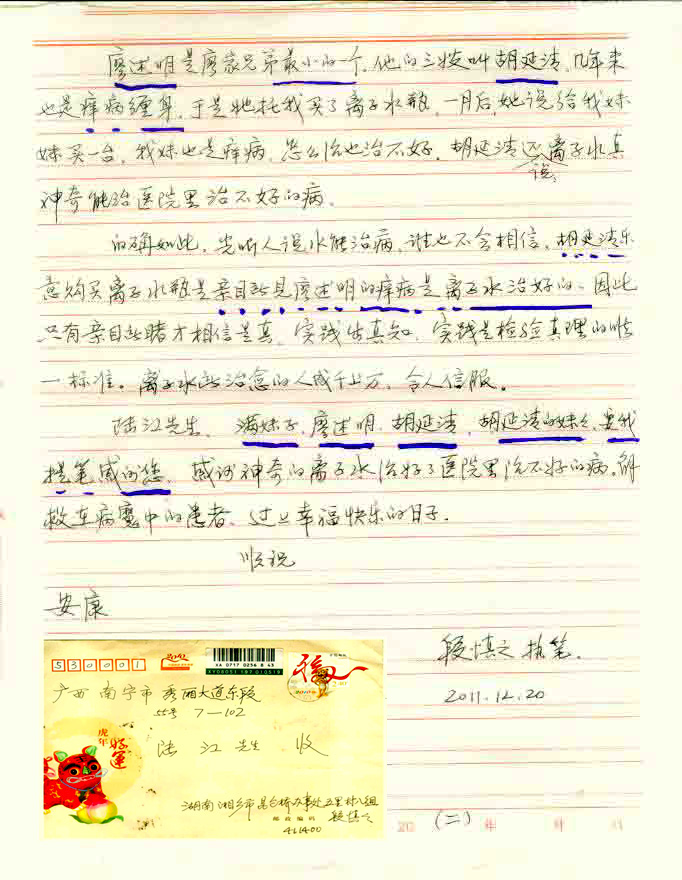 廖述明是廖家兄弟最小的一个。他的三嫂叫胡延清,几年来
也是痒病缠身,于是她托我买了离子水瓶,一月后,她说给我妹
妹买一台,我妹也是痒病,怎么治也治不好。胡延清还说,离子水真
神奇能治医院里治不好的病。
的确如此,光听人说水能治病,谁也不会相信,胡延清乐
意购买离子水瓶是亲自所见廖述明的痒病是离子水治好的。因此
只有亲自所睹才相信是真,实践出真知,实践是检验真理的唯
一标准。离子水所治愈的人成千上万,令人信服。
陆江先生,满妹子,廖述明,胡延清,胡延清的妹妹,要我
提笔感谢您,感谢神奇的离子水治好了医院里治不好的病。解
救在病魔中的患者,过上幸福快乐的日子。
顺祝
安康
段慎之 执笔。
2011.12.20
530001
XA 0717 0256 8 43
广西南宁市秀丽大道东段
55号 7—102
虎年
好运
陆 江 先生 收
湖南湘乡市昆仑桥办事处五里村八组
段慎之
邮政编码
411400
20 (二) 年 月 日